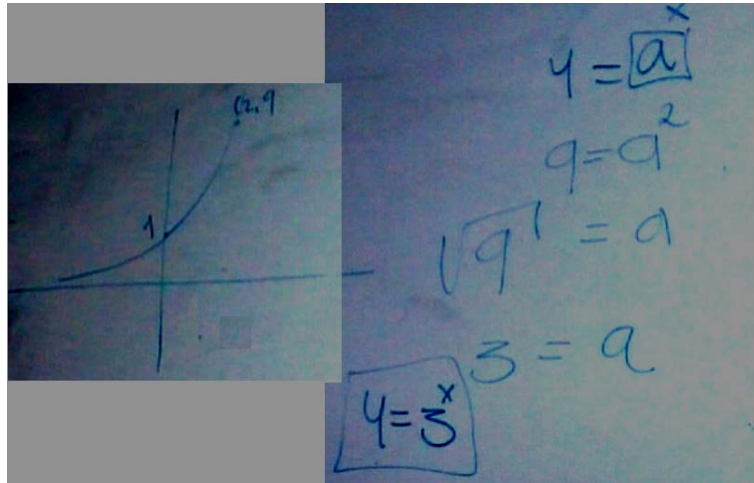 (2,9
1
y = a^x
9 = a^2
√9 = a
3 = a
y = 3^x